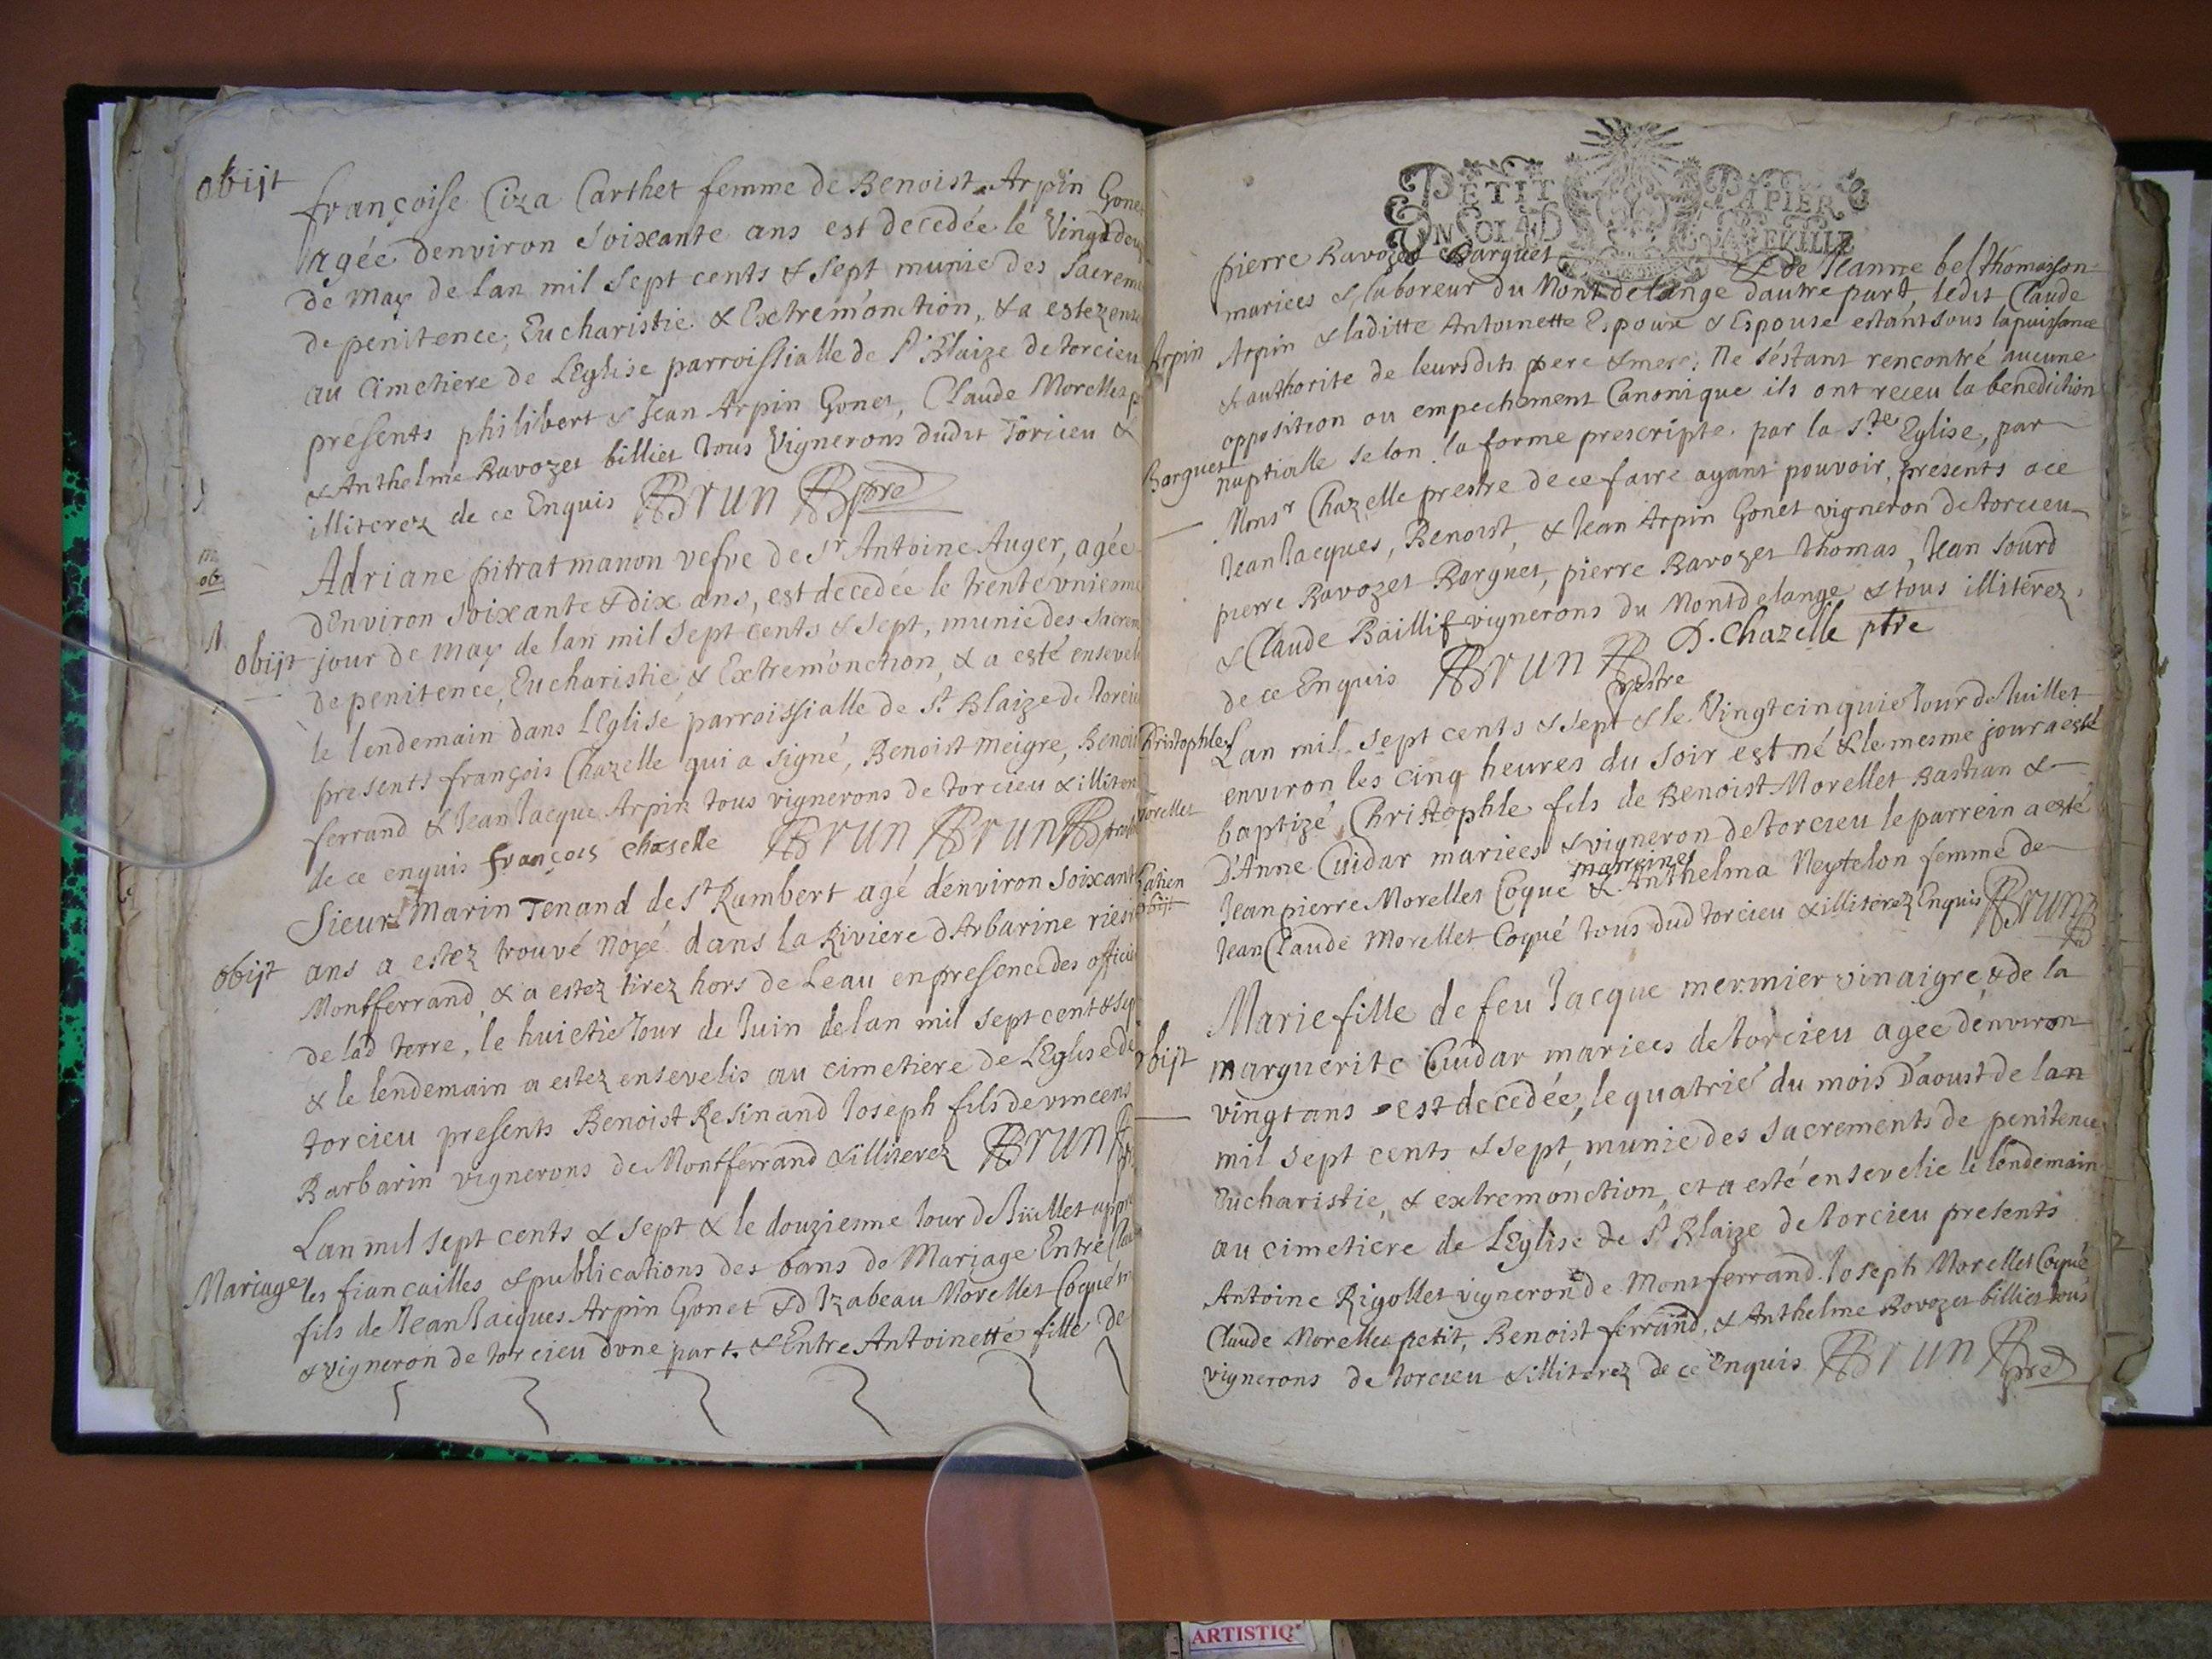 obijt
françoise Ciza Carthet femme de Benoist Arpin Gone
agée denviron soixante ans est decedée le Vingtdeu
de may de lan mil sept cents & sept munie des sacrem
de penitence, Eucharistie & Extremonction, & a estez ense
au Cimetiere de LEglise parroissialle de St Blaize de torcieu
presents philibert & Jean Arpin Gonet, Claude Morellet p
& Anthelme Ravozet billiet tous Vignerons dudit Torcieu &
illiterez de ce Enquis Brun pre
Adriane pitrat manon vefve de Sr Antoine Auger, agée
dEnviron soixante & dix ans, est decedée le trente vniesme
obijt jour de may de lan mil sept cents & sept, munie des sacrem
de penitence, Eucharistie, & Extremonction, & a esté ensevel
le lendemain dans lEglise parroissialle de St Blaize de torcie
presents françois Chazelle qui a signé, Benoist meigre, Benoi
ferrand & Jean Jacque Arpin tous vignerons de torcieu & illiter
de ce enquis françois chaselle Brun Brun
Sieur Marin Tenand de St Rambert agé denviron soixant
obijt ans a estez trouvé noyé dans la Riviere dArbarine rier
Montferrand & a estez tirez hors de Leau en presence des offici
de lad terre, le huictie Jour de Juin de lan mil sept cent & sep
& le lendemain a estez ensevelis au cimetiere de LEglise de
torcieu presents Benoist Resinand Joseph fils de vincens
Barbarin vignerons de Montferrand & illiterez Brun
Lan mil sept cents & sept & le douziesme Jour de Juillet appr
Mariage les fiancailles & publications des bans de Mariage Entre Clau
fils de Jean Jaicques Arpin Gonet & d Izabeau Morellet Coqué m
& vigneron de torcieu dvne part. & Entre Antoinette fille de
PETIT PAPIER
UN SOL LA FEUILLE
pierre Ravozet Barguet & de Jeanne bel thomasson
mariees & laboreur du Mont de lange dautre part, ledit Claude
Arpin Arpin & laditte Antoinette Espoux & Espouse estant sous la puissance
& authorite de leursdits pere & mere. Ne séstant rencontré aucune
opposition ou empechement Canonique ils ont receu la benediction
Barguet nuptialle selon la forme prescripte par la Ste Eglise, par
Monsr Chazelle prestre de ce faire ayant pouvoir, presents a ce
Jean Jacques, Benoist, & Jean Arpin Gonet vigneron de torcieu
pierre Ravozet Barguet, pierre Ravozet thomas, Jean Sourd
& Claude Baillif vignerons du Mont de lange & tous illiterez
de ce Enquis Brun D. Chazelle ptre
pbstre
Christophle Lan mil sept cents & sept & le Vingtcinquie Jour de Juillet
environ les cinq heures du soir est né & le mesme jour a esté
baptizé Christophle fils de Benoist Morellet Bastian &
Morellet D'Anne Cuidar mariees & vigneron de torcieu le parrein a esté
marreine
Jean pierre Morellet Coque & Anthelma Neytelon femme de
Jean Claude Morellet Coqué tous dud torcieu & illiterez Enquis Brun
Marie fille de feu Jacque mermier vinaigre & de la
obijt marguerite Cuidar mariees de torcieu agee denviron
vingt ans est decedée, le quatrie du mois Daoust de lan
mil sept cents & sept, munie des sacrements de penitence
Eucharistie, & extremonction, et a esté ensevelie le lendemain
au cimetiere de LEglise de St Blaize de torcieu presents
Antoine Rigollet vigneron de Montferrand Joseph Morellet Coqué
Claude Morellet petit, Benoist ferrand, & Anthelme Ravozet billiet tous
vignerons de torcieu & illiterez de ce Enquis Brun pre
ARTISTIQ